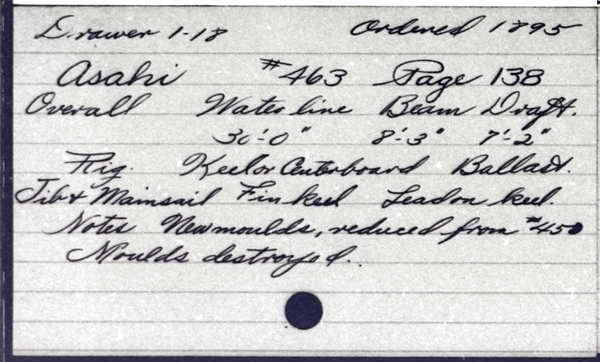 Drawer 1-18 Ordered 1895
Asahi #463 Page 138
Overall Water line Beam Draft.
30'-0" 8'-3" 7'-2"
Rig. Keel or Centerboard Ballast.
Jib & Mainsail Fin keel Lead on keel.
Notes New moulds, reduced from #450
Moulds destroyed.